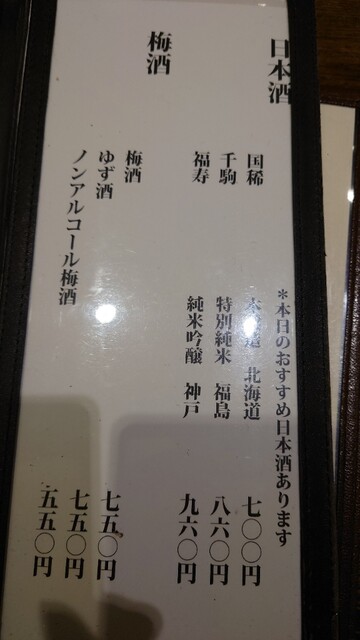 日本酒
＊本日のおすすめ日本酒あります
国稀 北海道 七〇〇円
千駒 特別純米 福島 八六〇円
福寿 純米吟醸 神戸 九六〇円
梅酒
梅酒 七五〇円
ゆず酒 七五〇円
ノンアルコール梅酒 五五〇円